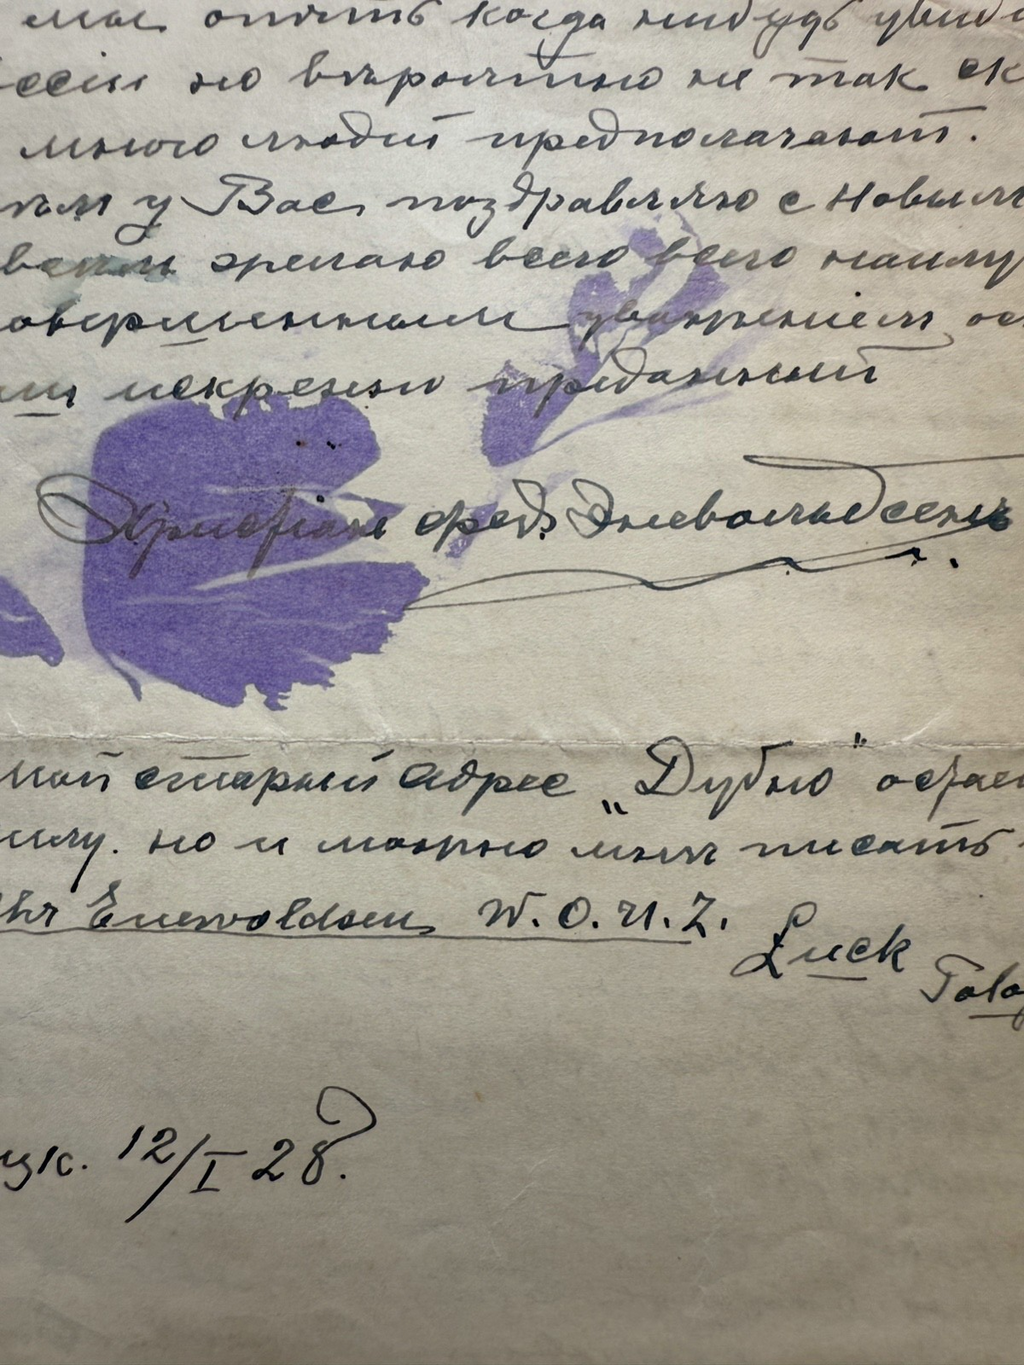 мы опять когда нибудь увид
ссiи но вѣроятно не так ск
много людей предполагают.
у Вас, поздравляю с Новым
желаю всего всего наилу
овершенным уваженiем ос
искренно преданный
Христiан фред. Эневольдсенъ
мой старый адрес „Дубно" остает
илу. но и можно мнѣ писать
Chr Enewoldsen, W.O.U.Z. Luck
12/I 28.